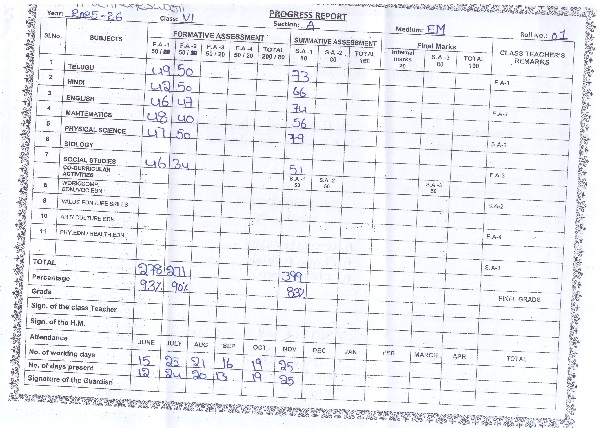 PROGRESS REPORT
Year: 2025-26 Class: VI Section: A Medium: EM Roll No.: 01
Sl.No. SUBJECTS FORMATIVE ASSESSMENT SUMMATIVE ASSESSMENT Final Marks CLASS TEACHER'S REMARKS
F.A.-1 F.A.-2 F.A.-3 F.A.-4 TOTAL S.A.-1 S.A.-2 TOTAL Internal marks S.A.-3 TOTAL
50 / 20 200 / 80 80 80 20 80 100
1 TELUGU 49 50 73 F.A.-1
2 HINDI 42 50 66
3 ENGLISH 46 47 74 F.A.-2
4 MATHEMATICS 48 40 56
5 PHYSICAL SCIENCE 47 50 79 S.A.-1
6 BIOLOGY
7 SOCIAL STUDIES 46 34 51 F.A.-3
CO-CURRICULAR ACTIVITIES S.A.-1 50 S.A.-2 50 S.A.-3 50
8 WORK/COMP. EDN/VOC EDN
9 VALUE EDN / LIFE SKILLS S.A.-2
10 ART/CULTURE EDN
11 PHY.EDN / HEALTH EDN F.A.-4
TOTAL 278 271 399 S.A.-3
Percentage 93% 90% 83%
Grade FINAL GRADE
Sign. of the class Teacher
Sign. of the H.M.
Attendance JUNE JULY AUG SEP OCT NOV DEC JAN FEB MARCH APR TOTAL
No. of working days 15 23 21 16 19 25
No. of days present 12 24 20 13 19 25
Signature of the Guardian